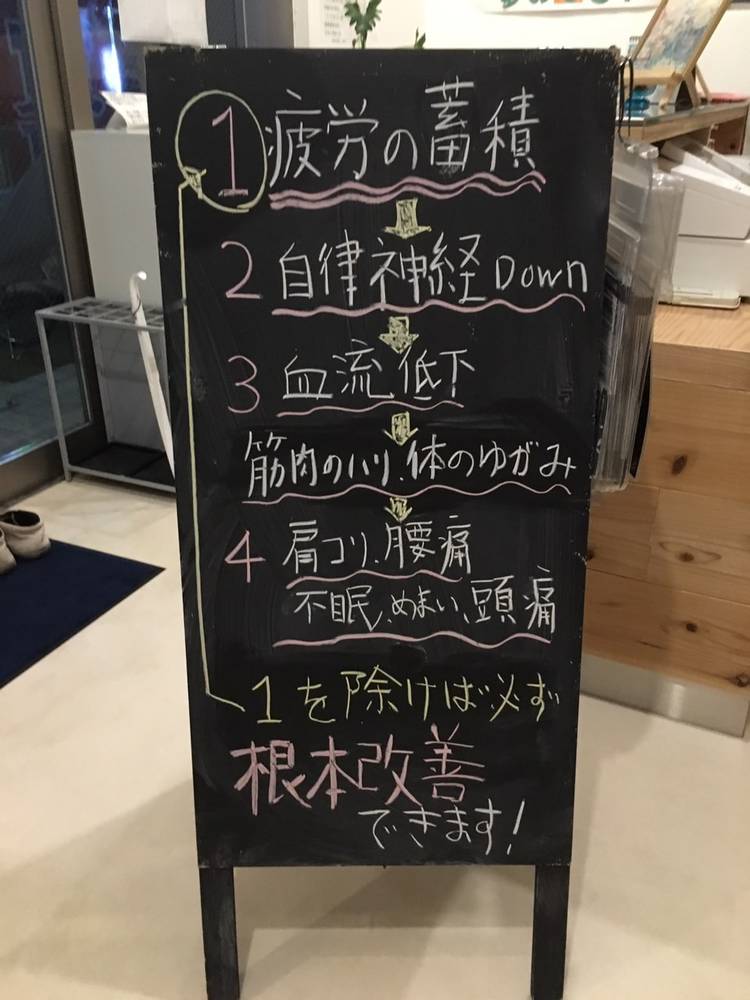 1 疲労の蓄積
2 自律神経 Down
3 血流低下
筋肉のハリ、体のゆがみ
4 肩コリ、腰痛
不眠、めまい、頭痛
1を除けば必ず
根本改善
できます!